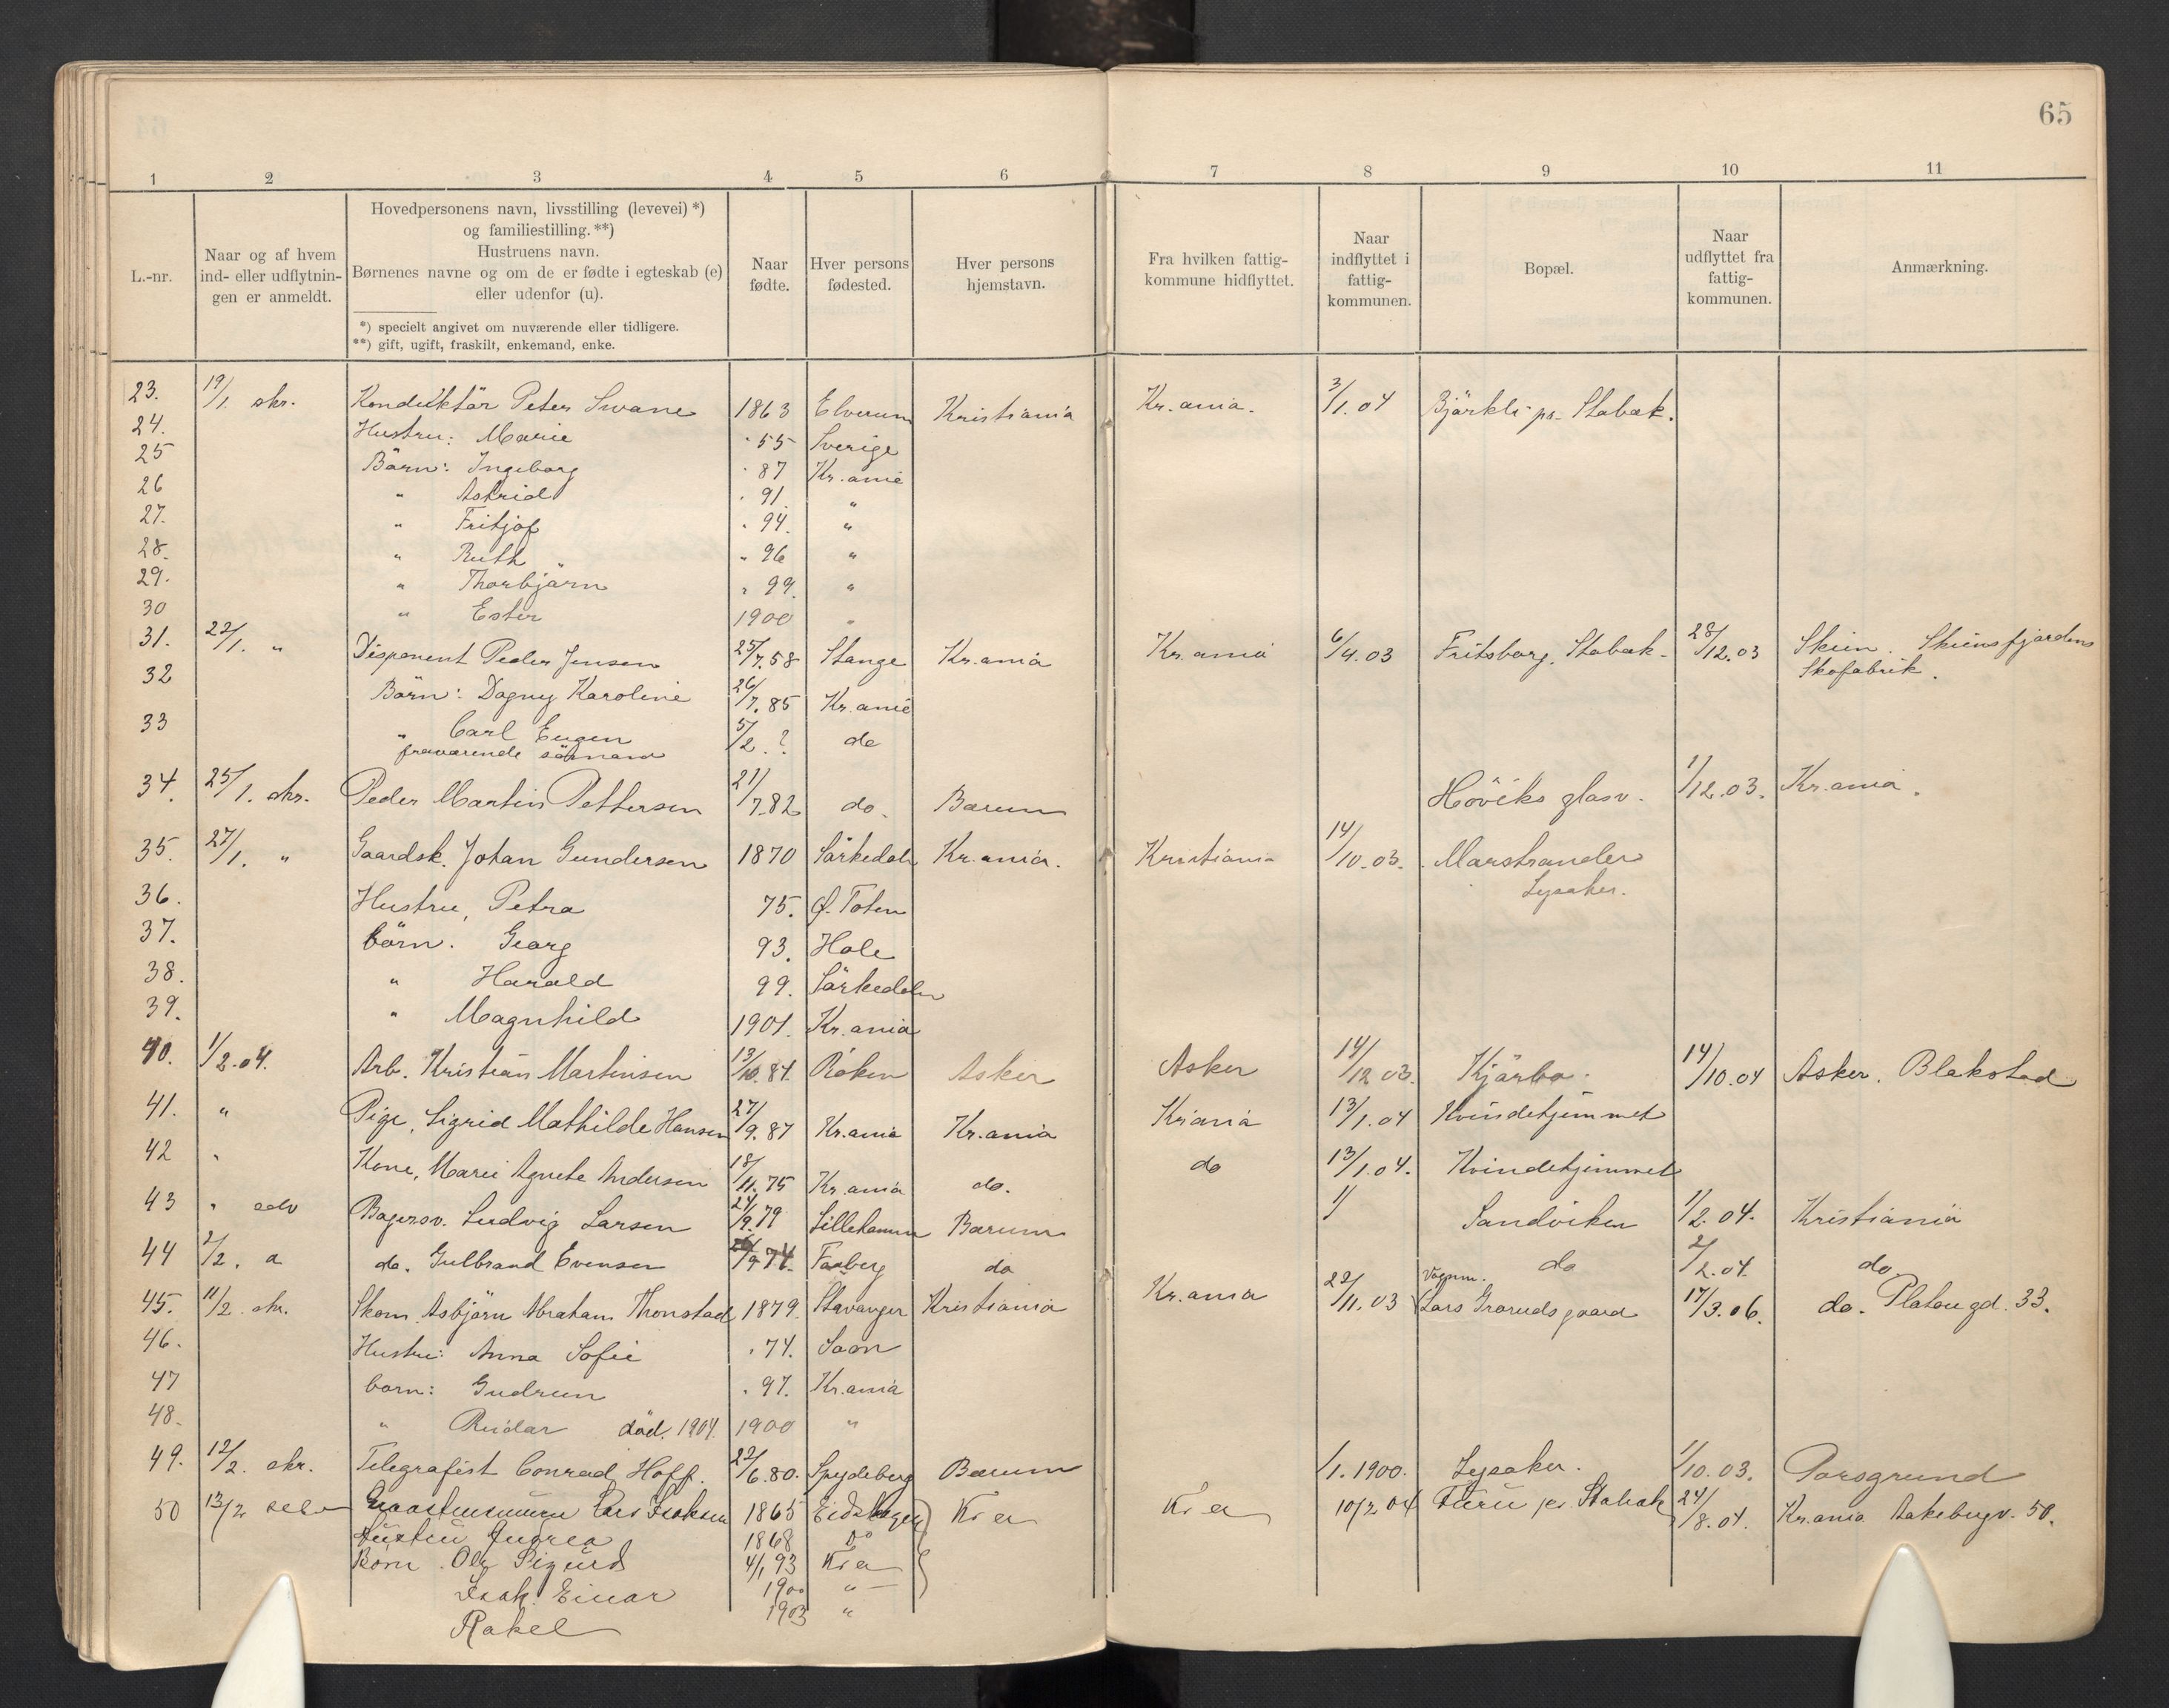 65
1 2 3 4 5 6 7 8 9 10 11
L.-nr.
Naar og af hvem
ind- eller udflytnin-
gen er anmeldt.
Hovedpersonens navn, livsstilling (levevei) *)
og familiestilling. **)
Hustruens navn.
Børnenes navne og om de er fødte i egteskab (e)
eller udenfor (u).
*) specielt angivet om nuværende eller tidligere.
**) gift, ugift, fraskilt, enkemand, enke.
Naar
fødte.
Hver persons
fødested.
Hver persons
hjemstavn.
Fra hvilken fattig-
kommune hidflyttet.
Naar
indflyttet i
fattig-
kommunen.
Bopæl.
Naar
udflyttet fra
fattig-
kommunen.
Anmærkning.
23. 19/1. skr. Konduktör Peter Svane 1863 Elverum Kristiania Kr.ania. 3/1.04 Björkli pr. Stabæk.
24. Hustru: Marie " 55 Sverige
25 Börn: Ingeborg " 87 Kr.ania
26 " Astrid " 91 "
27. " Fritjof " 94. "
28. " Ruth " " 96 "
29. " Thorbjörn " 99. "
30 " Ester 1900 "
31. 22/1. " Disponent Peder Jensen 25/7.58 Stange Kr.ania Kr.ania 6/4.03 Fritsborg, Stabæk. 28/12.03 Skien. Skiensfjordens
Skofabrik.
32 Börn: Dagny Karoline 26/7.85 Kr.ania
33 " Carl Eugen 5/2.? do
fraværende sömand
34. 25/1. skr. Peder Martin Pettersen 21/7.82 do. Bærum Höviks glasv. 1/12.03. Kr.ania.
35. 27/1. " Gaardsk. Johan Gundersen 1870 Sörkedalen Kr.ania. Kristiania 14/10.03. Marstrander
Lysaker.
36. Hustru, Petra 75. Ø. Toten
37. börn: Georg 93. Hole
38. " Harald 99. Sörkedalen
39. " Magnhild 1901. Kr.ania
40. 1/2.04. Arb. Kristian Martinsen 13/10.84. Röken Asker Asker 14/12 03. Kjörbo. 14/10.04 Asker. Blakstad
41. " Pige, Sigrid Mathilde Hansen 27/9.87 Kr.ania Kr.ania Kr.ania 13/1.04 Kvindehjemmet
42 " Kone, Marie Agnete Andersen 18/11.75 Kr.ania do. do 13/1.04. Kvindehjemmet
43 " selv Bagersv. Ludvig Larsen 24/9.79 Lillehammer Bærum 1/ Sandviken 1/2.04. Kristiania
44 2/2. a do. Gulbrand Evensen /9 74. Faaberg do do 2/2.04. do
45. 11/2. skr. Skom. Asbjörn Abraham Thonstad 1879. Stavanger Kristiania Kr.ania 22/11.03 Vognm.
Lars Groruds gaard 17/3.06. do. Platougd. 33.
46. Hustru: Anna Sofie " 74. Soon
47 barn: Gudrun " 97. Kr.ania
48. " Reidar död. 1904. 1900 "
49. 12/2. skr. Telegrafist Conrad Hoff. 22/6.80. Spydeberg Bærum 1/1.1900. Lysaker. 1/10.03. Porsgrund
50 13/2 selv Lars Isaksen 1865 Eidskogen Kr a Kr a 10/2 04 Furu pr. Stabæk 24/8.04. Kr.ania Aakebergv. 50.
Hustru Andrea 1868 Do
Børn. Ole Sigurd 4/1 93 Kr a
Isak Einar 1900 "
Rakel 1903 "